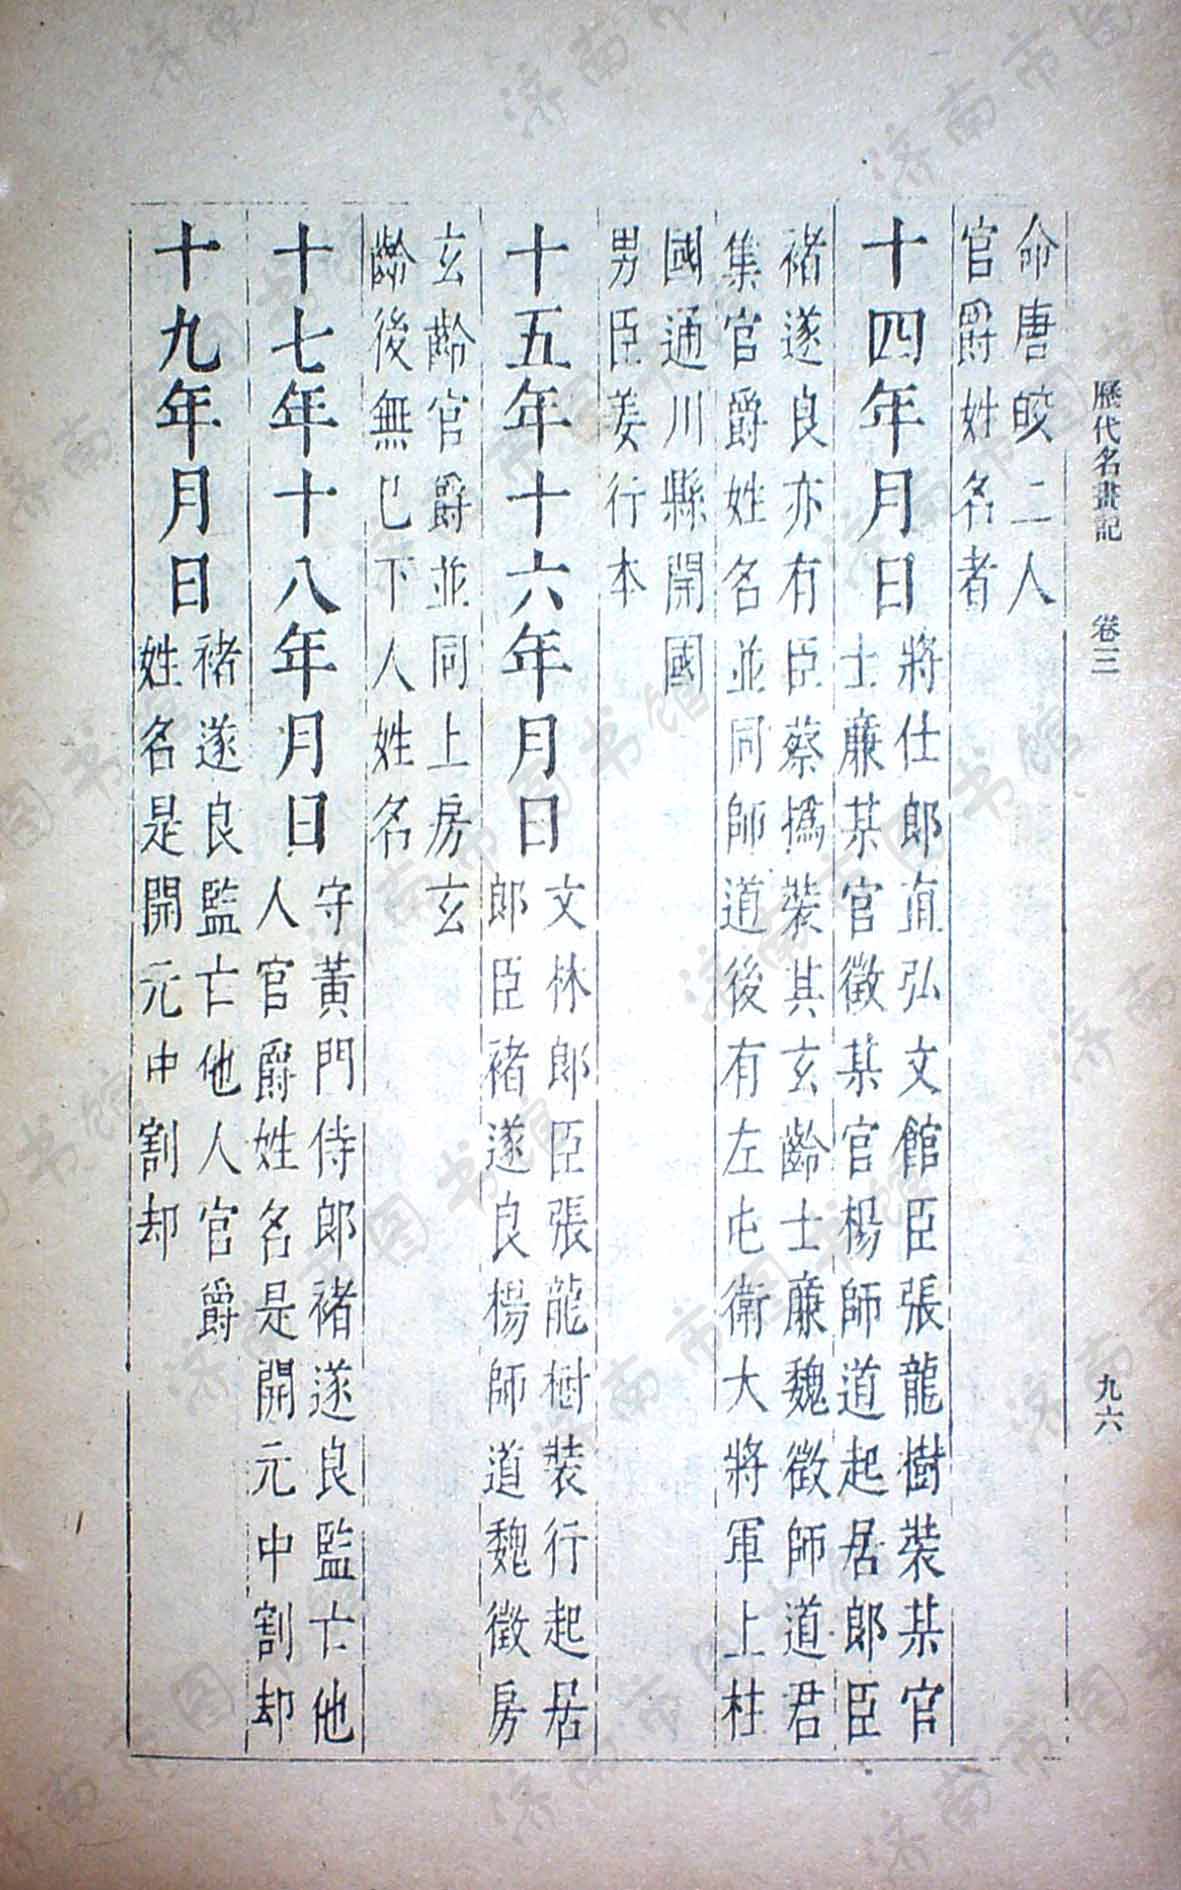 歷代名畫記　卷三　九六
命唐皎二人
官爵姓名者
十四年月日
將仕郎直弘文館臣張龍樹裝某官
士廉某官徵某官楊師道起居郎臣
褚遂良亦有臣蔡撝裝其玄齡士廉魏徵師道君
集官爵姓名並同師道後有左屯衛大將軍上柱
國通川縣開國
男臣姜行本
十五年十六年月日
文林郎臣張龍樹裝行起居
郎臣褚遂良楊師道魏徵房
玄齡官爵並同上房玄
齡後無已下人姓名
十七年十八年月日
守黃門侍郎褚遂良監亡他
人官爵姓名是開元中割却
十九年月日
褚遂良監亡他人官爵
姓名是開元中割却
济南市图书馆